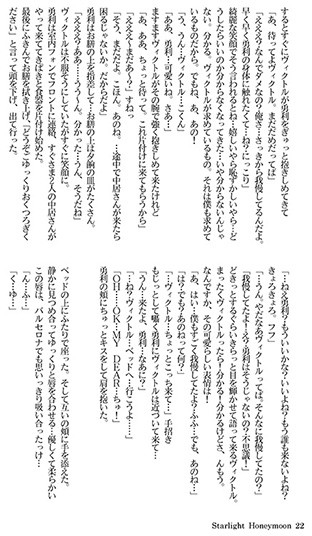 するとすぐにヴィクトルが勇利をぎゅっと抱きしめてきて
「あ、待ってよヴィクトル。まだだめだってば」
「えええ？なんでダメなの？俺さ…さっきから我慢してるんだよ。
早く早く勇利の身体に触れたくて…ね？にっこり」
綺麗な笑顔でそう言われると…ね…嬉しいやら恥ずかしいやら…ど
うしたらいいのか分からなくなってきた…いや分からないんじゃ
ない。分かる。ヴィクトルが求めているもの。それは僕も求めて
いるものだから。でもね。あ、あの！
「あ、あの…ヴィクトル…こくん」
「ああ…勇利…可愛いいね…」
ますますヴィクトルがその腕で強く抱きしめて来たけれど
「あ、ああ、ちょっと待って。これ片付けに来てもらうから」
「えええ～まだあ～？」すねっ
「そう、まだだよ。ごはん。あのね。…途中で中居さんが来たら
困るじゃないか。だからだよ」
勇利はお膳の上を指差して…お膳の上は夕餉の皿がたくさん。
「えええ？ああ……うう～ん。分かった…うん。そうだね」
ヴィクトルは不服そうにしていたがすぐに笑顔に。
勇利は室内フォンでフロントに連絡。すぐさま２人の中居さんが
やって来てぱきぱきと食器を片付け始めた。
最後にふきんでお膳を拭き上げ「どうぞごゆっくりおくつろぎく
ださい」と言って頭を下げ、出て行った。
「…ねえ勇利？もういいかな？いいよね？もう誰も来ないよね？
きょろきょろ。フフ」
「…うん。やだなあヴィクトルってば。そんなに我慢してたの？」
「我慢してたよ！え？勇利はそうじゃないの？不思議！」
どきっとするぐらいきらっと目を輝かせて語って来るヴィクトル。
まったくヴィクトルったら！分かる！分かるけどさ、んもう。
なんですか、その可愛らしい表情は！
「あ、はい…僕もすごく我慢してたよ？ふふ…でも、あのね…」
「は？でも？あのねって何？」
「…ヴィクトル…ちょっとこっち来て…」手招き
もじっとして囁く勇利にヴィクトルは近づいて来て…
「うん…来たよ。勇利…なあに？」
「…ね？ヴィクトル…ベッドへ…行こうよ……」
「OH…OK…MY DEAR…ちゅ！」
勇利の頬にちゅっとキスをして肩を抱いた。
ベッドの上にふたりで座った。そして互いの頬に手を添えた。
静かに見つめ合ってゆっくりと唇を合わせる…優しくて柔らかい
この唇は、バルセロナでも思いっきり吸い合ったっけ…
「ん…ふ…」
「く…ゆ…」
Starlight Honeymoon 22